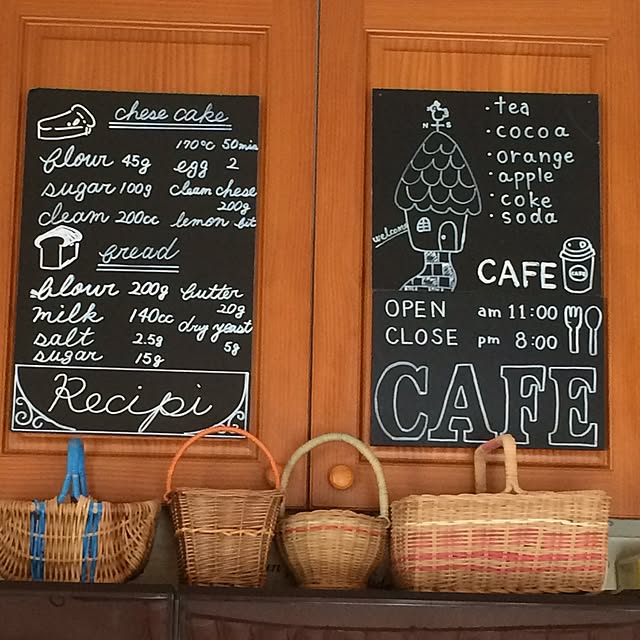 chese cake
170°C 50min
flour 45g egg 2
sugar 100g cleam chese
200g
cleam 200cc lemon bit
bread
flour 200g butter
20g
milk 140cc dry yeast
salt 2.5g 5g
sugar 15g
Recipi
N S
welcome
・tea
・cocoa
・orange
・apple
・coke
・soda
CAFE
CAFE
OPEN am 11:00
CLOSE pm 8:00
CAFE